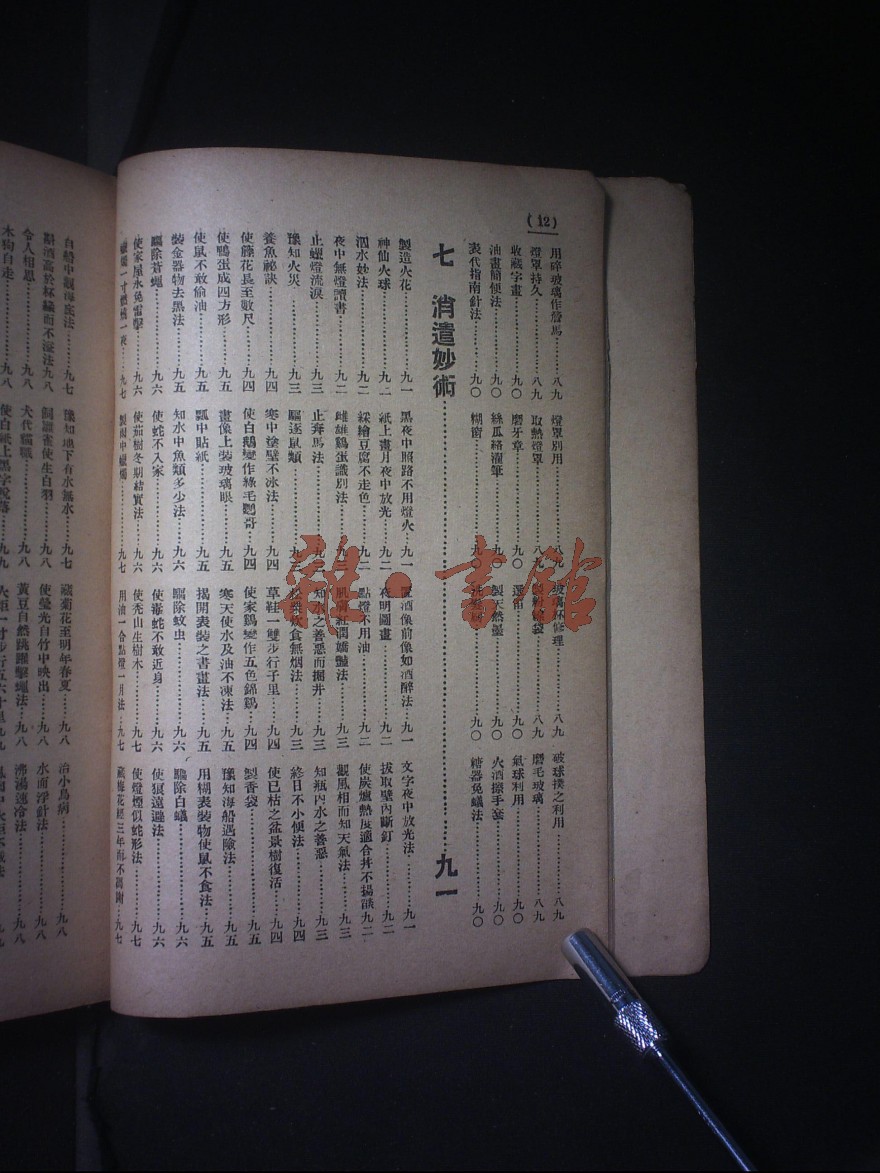 (12)
用碎玻璃作籌馬……八九 燈罩別用……八九 玻璃杯修理……八九 破球撲之利用……八九
燈罩持久……八九 取熱燈罩……八九 八九 磨毛玻璃……八九
收藏字畫……九〇 磨牙章……九〇 九〇 氣球利用……九〇
油畫簡便法……九〇 絲瓜絡灌筆……九〇 製天然墨……九〇 火酒擦手套……九〇
表代指南針法……九〇 糊窗……九〇 九〇 糖器免蟻法……九〇
七 消遣妙術……九一
製造火花……九一 黑夜中照路不用燈火……九一 置酒像前像如酒醉法……九一 文字夜中放光法……九一
神仙火球……九二 紙上畫月夜中放光……九二 夜明圖畫……九二 拔取壁內斷釘……九二
泅水妙法……九二 綵繪豆腐不走色……九二 點燈不用油……九二 使炭爐熱度適合并不揚燄……九二
夜中無燈讀書……九二 雌雄鷄蛋識別法……九三 肌膚紅潤嬌豔法……九三 觀風相而知天氣法……九三
止蠟燈流淚……九三 止奔馬法……九三 知水之善惡而掘井……九三 知瓶內水之善惡……九三
豫知火災……九三 驅逐鼠類……九三 飲食無烟法……九三 終日不小便法……九四
養魚祕訣……九四 寒中塗壁不冰法……九四 草鞋一雙步行千里……九四 使已枯之盆景樹復活……九四
使籐花長至數尺……九四 使白鵝變作綠毛鸚哥……九四 使家鷄變作五色錦鷄……九四 製香袋……九五
使鴨蛋成四方形……九五 畫像上裝玻璃眼……九五 寒天使水及油不凍法……九五 豫知海船遇險法……九五
使鼠不敢偷油……九五 瓢中貼紙……九五 揭開表裝之書畫法……九五 用糊表裝物使鼠不食法……九五
裝金器物去黑法……九五 知水中魚類多少法……九六 驅除蚊虫……九六 驅除白蟻……九六
驅除蒼蠅……九六 使蛇不入家……九六 使毒蛇不敢近身……九六 使狼遠避法……九六
使家屋永免雷擊……九六 使茄樹冬期結實法……九六 使禿山生樹木……九七 使燈煙似蛇形法……九七
蠟燭一寸燃燒一夜……九七 製雨中蠟燭……九七 用油一合點燈一月法……九七 藏梅花經三年而不凋謝……九七
自船中觀海底法……九七 豫知地下有水無水……九七 藏菊花至明年春夏……九八 治小鳥病……九八
點酒高於杯緣而不溢法……九八 飼頴雀使生白羽……九八 使螢光自竹中映出……九八 水面浮針法……九八
令人相思……九八 犬代貓職……九八 黃豆自然跳躍擊蠅法……九八 沸湯速冷法……九八
木狗自走……九八 使白紙上黑字脫落……九九
雜·書館